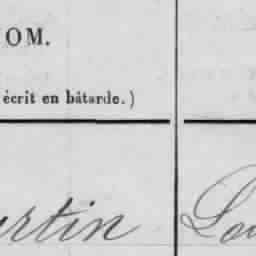 OM.
écrit en bâtarde.)
urtin Lou